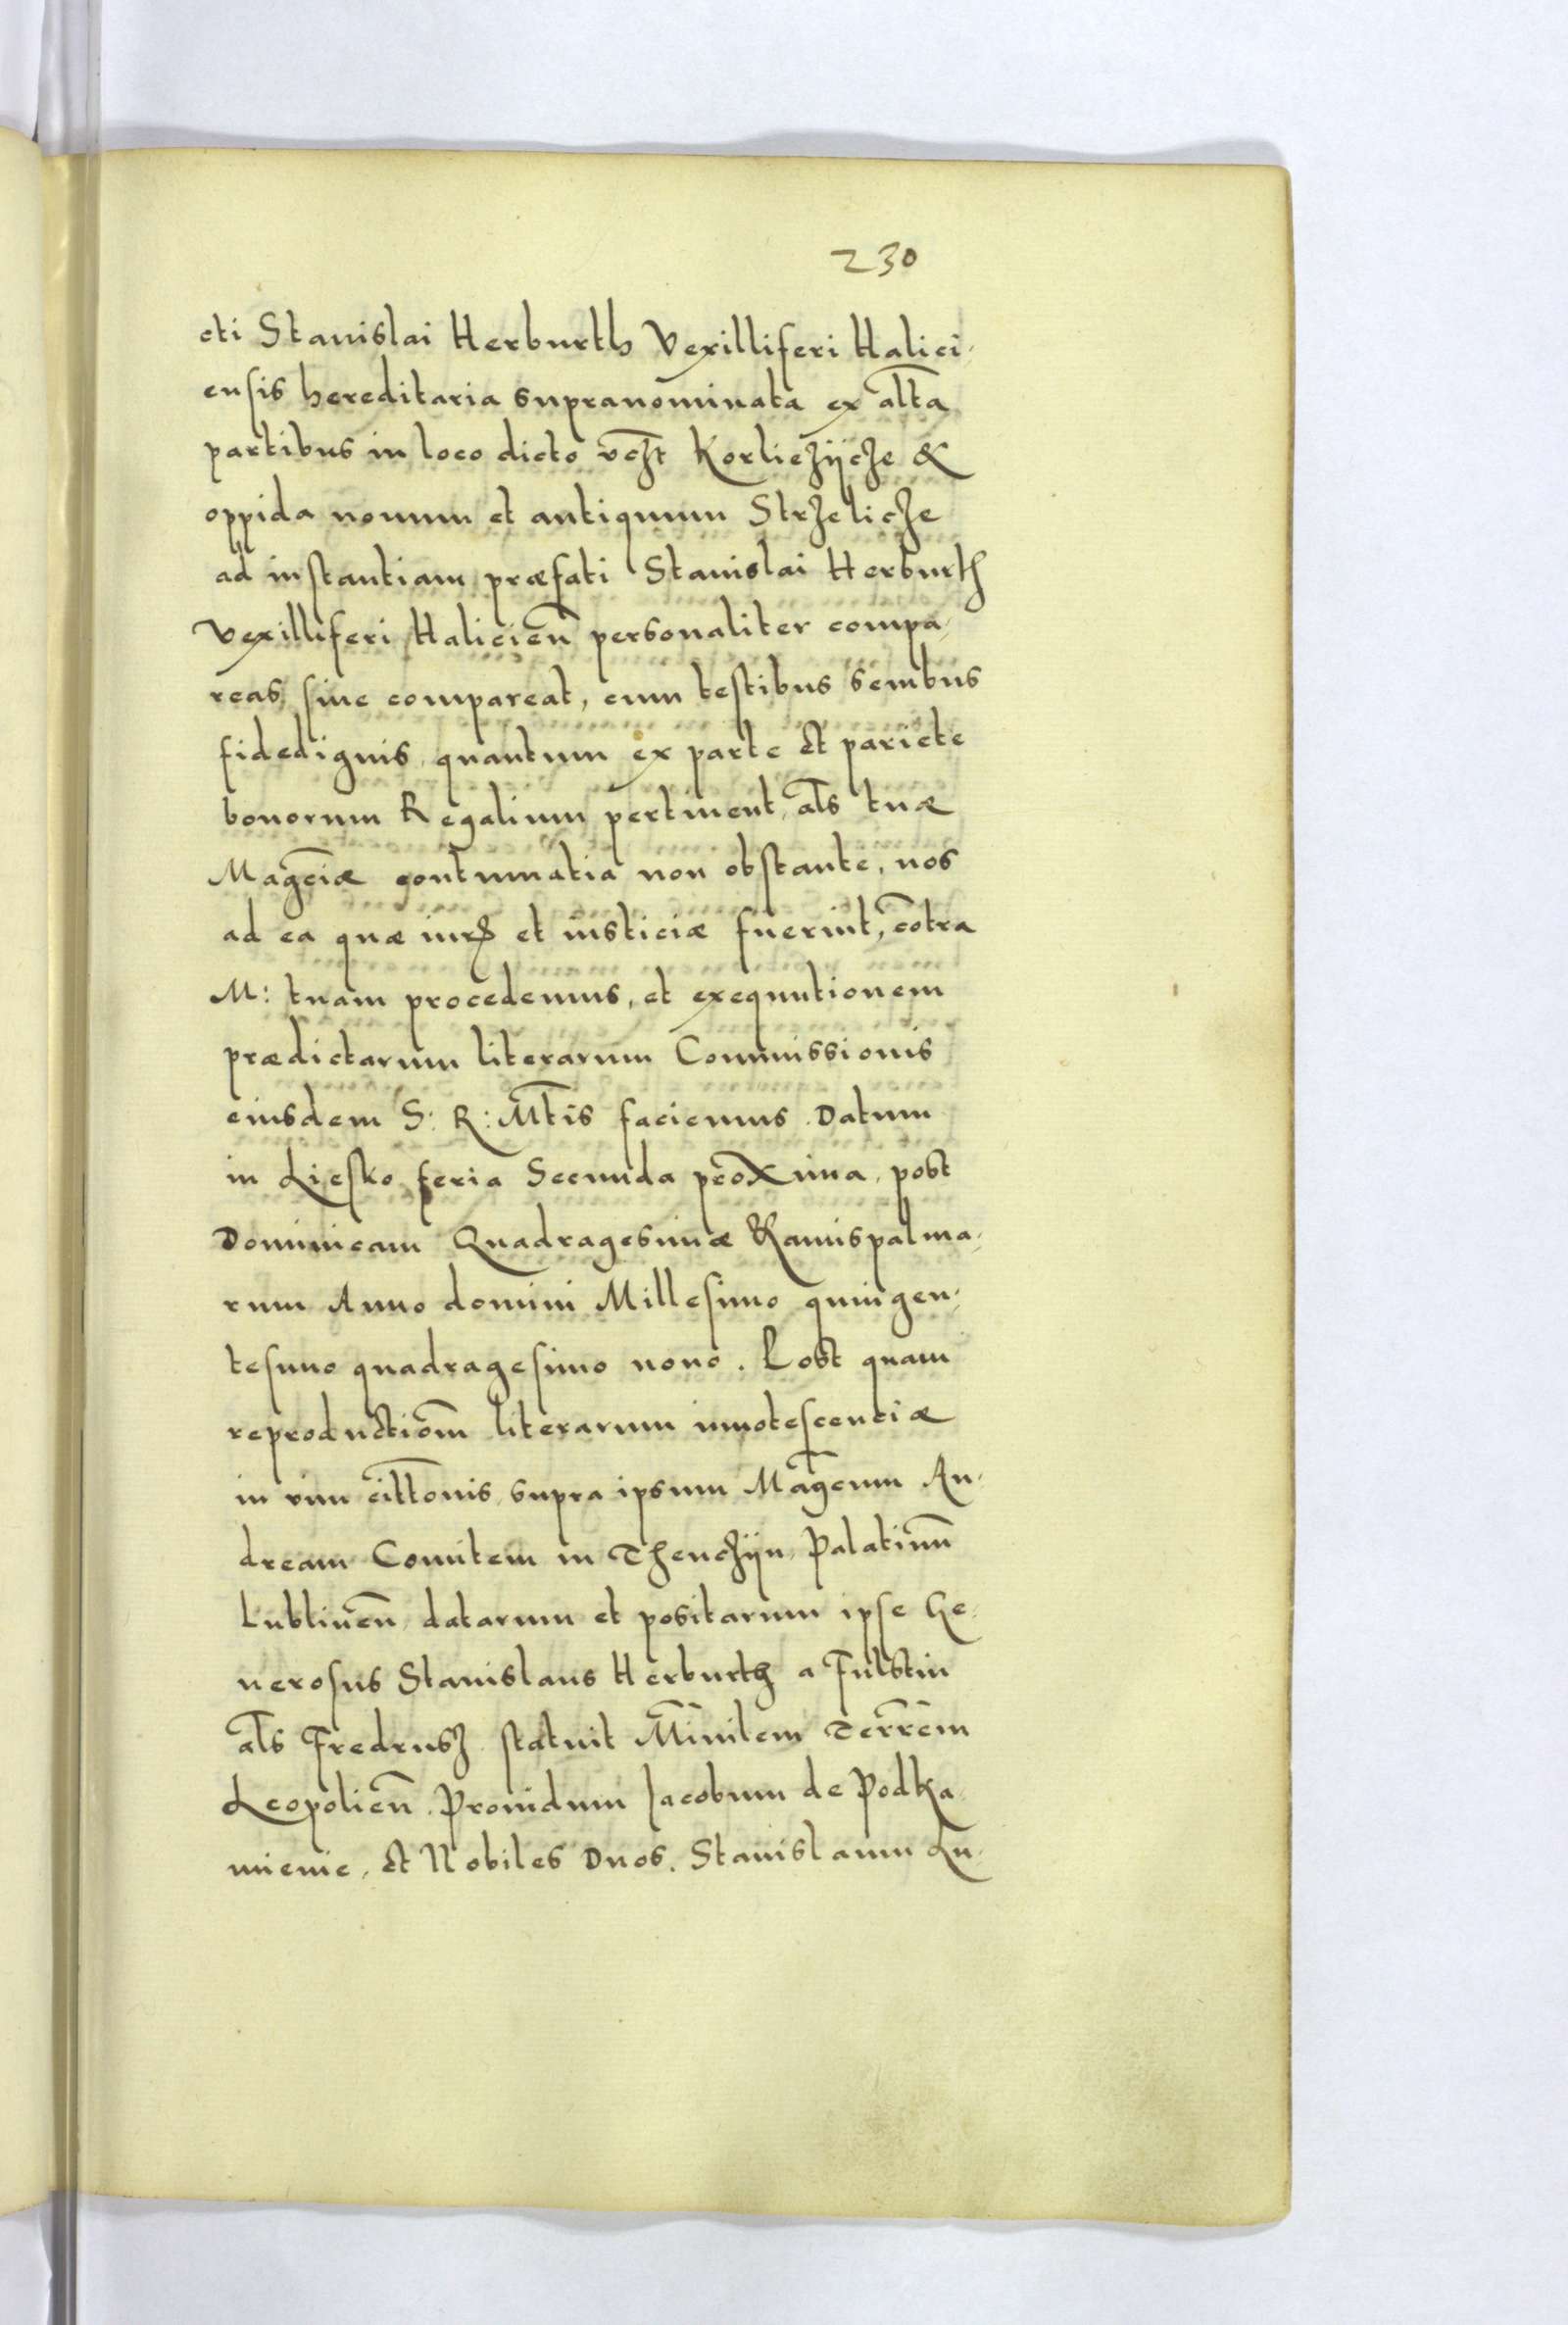 230
cti Stanislai Herburth Vexilliferi Halici-
ensis hereditaria supranominata ex alt̄a
partibus in loco dicto vc̄zt Korlieziÿcze &
oppida nouum et antiquum Strzelicze
ad instantiam præfati Stanislai Herburth
Vexilliferi Halicien̄ personaliter compa-
reas, siue compareat, cum testibus sembus
fidedignis, quantum ex parte et pariete
bonorum Regalium pertinent, al̄s tuæ
Magc̄iæ contumatia non obstante, nos
ad ea quæ iur̄ et iusticiæ fuerint, cōtra
M: tuam procedemus, et exequutionem
prædictarum literarum Commissionis
eiusdem S: R: Mt̄is faciemus. Datum
in Liesko feria Secunda proxima, post
Dominicam Quadragesimæ Ramispalma-
rum Anno domini Millesimo quingen-
tesimo quadragesimo nono. Post quam
reproductiōm literarum innotescentiæ
in vim citt̄onis, supra ipsum Māgcum An-
dream Comitem in Thencziÿn, Palatinū
Lublinen̄ datarum et positarum ipse Ge-
nerosus Stanislaus Herburth a Fulstin
al̄s Fredrusz statuit Mīnilem Terrēm
Leopolien̄. Prouidum Jacobum de Podka-
mienie, et Nobiles Duos. Stanislaum Lu-